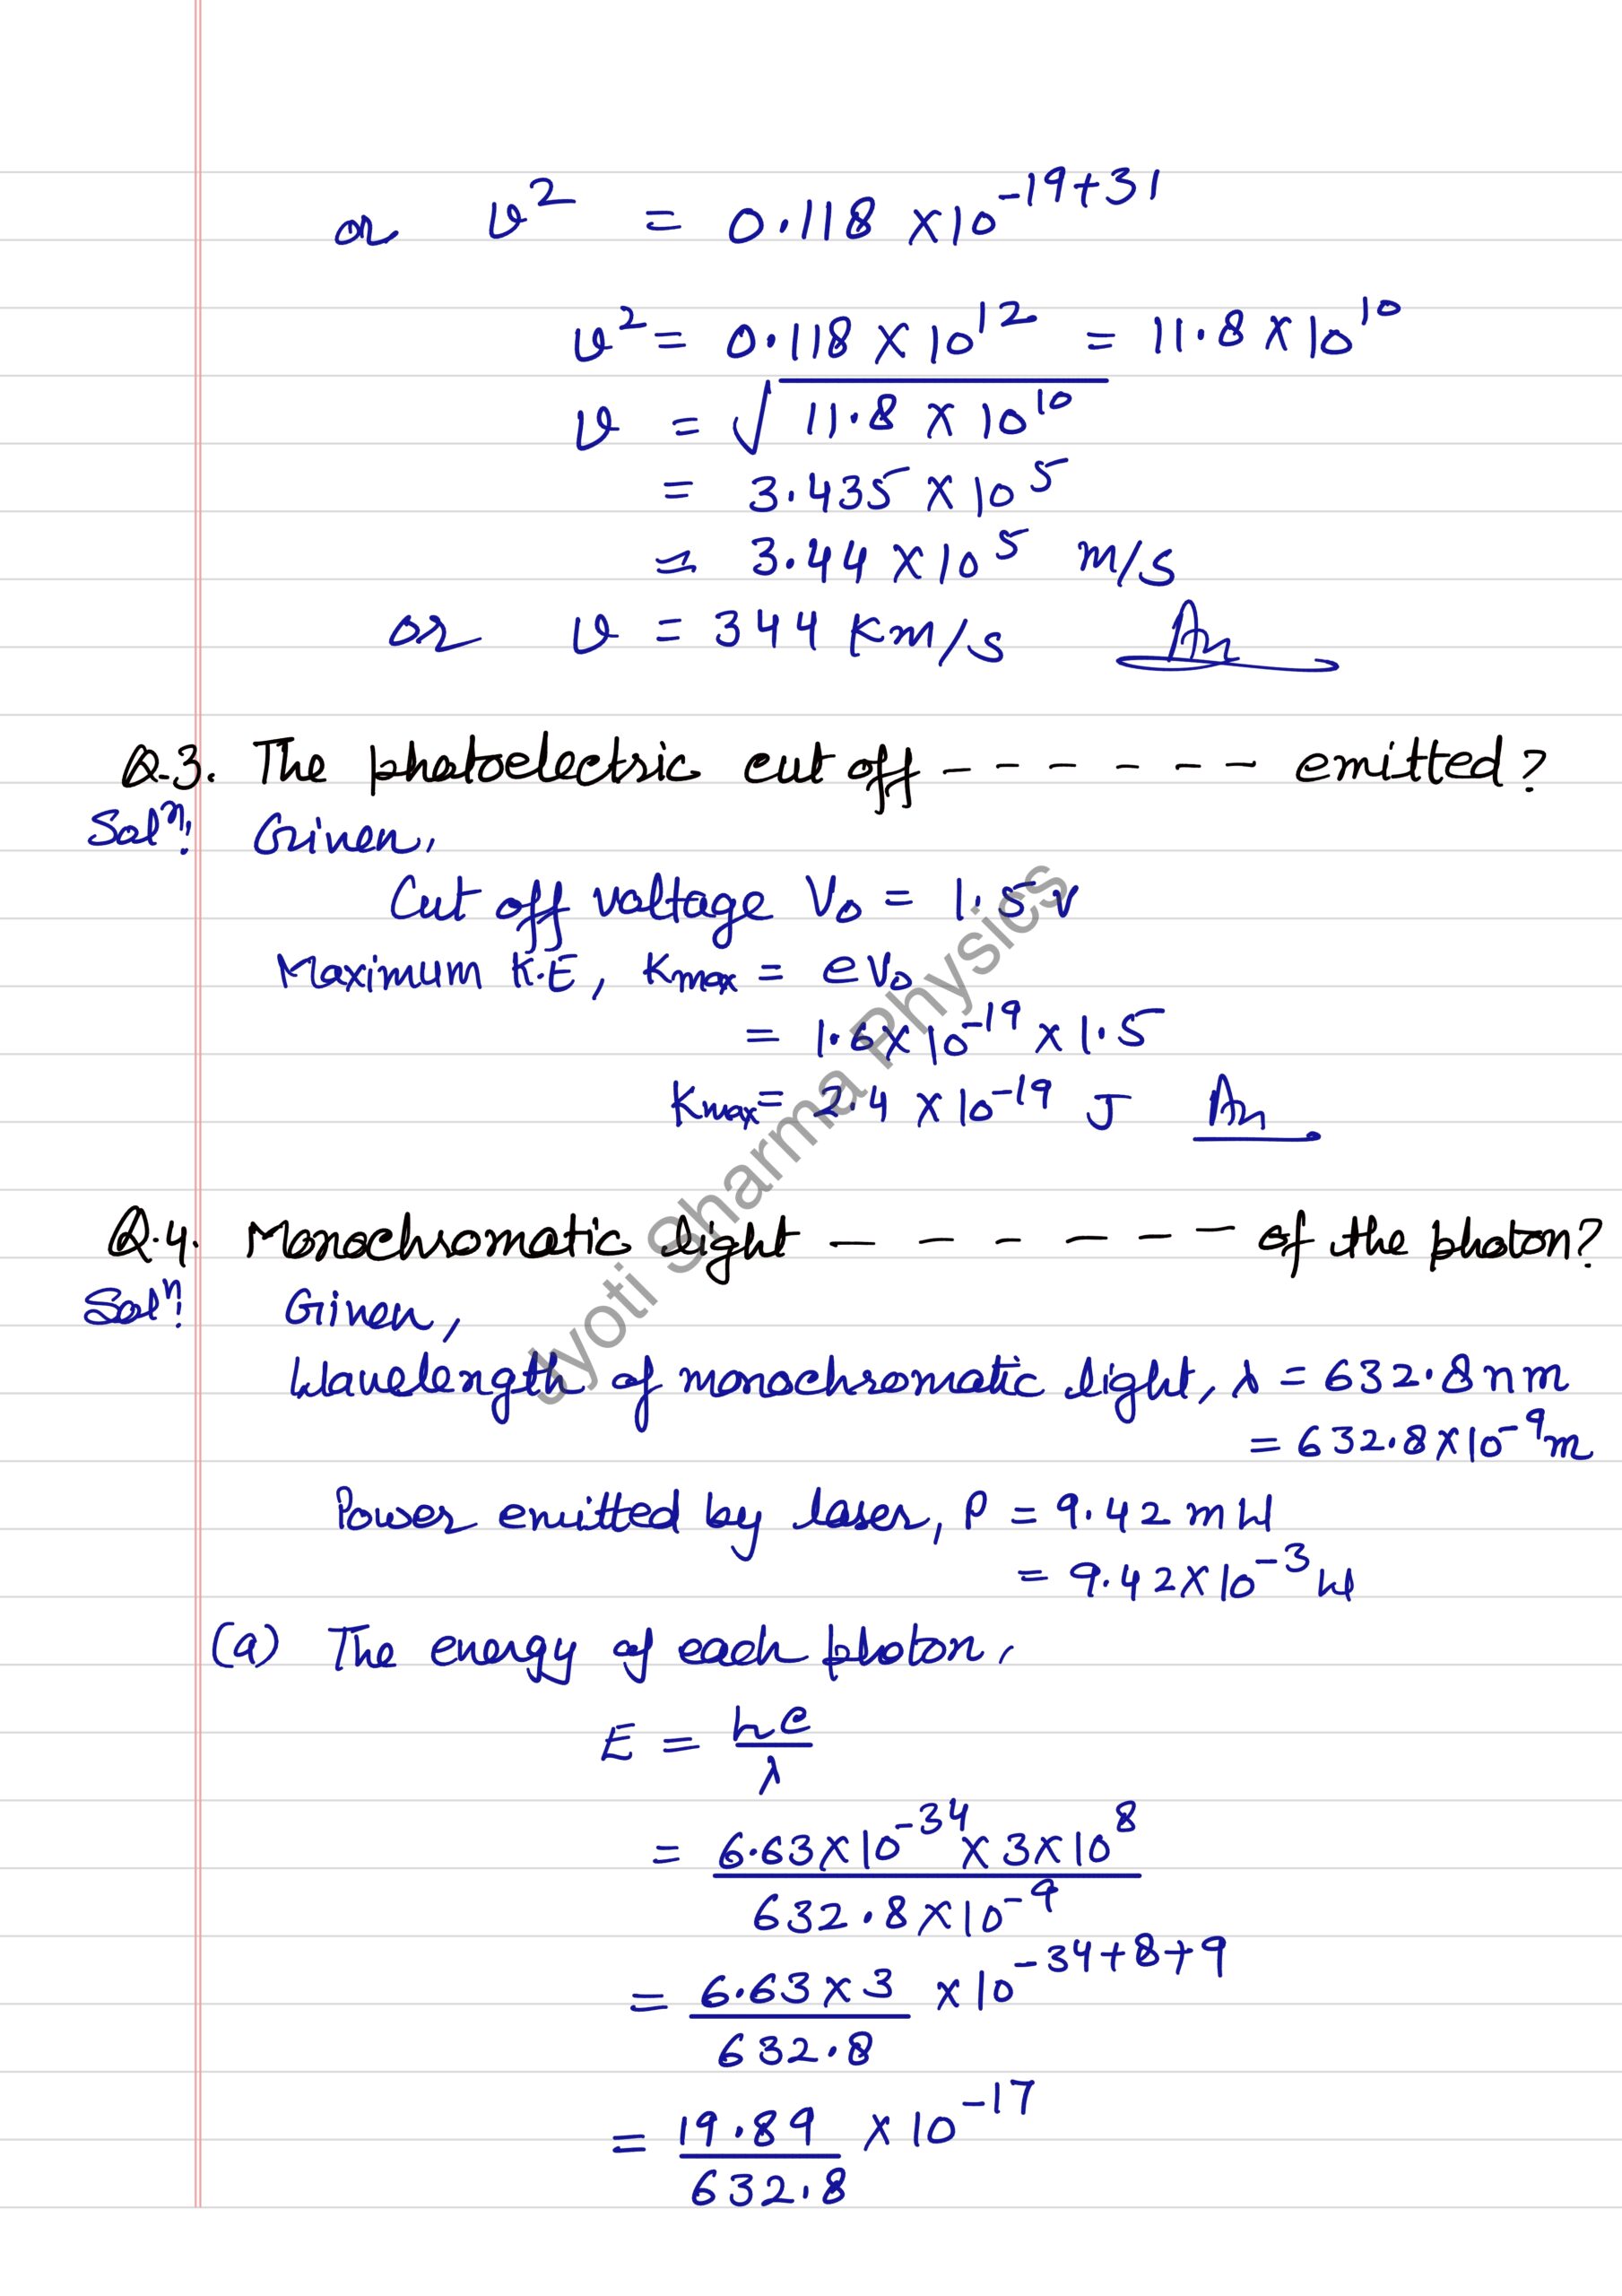 or v² = 0.118 × 10⁻¹⁹⁺³¹
v² = 0.118 × 10¹² = 11.8 × 10¹⁰
v = √11.8 × 10¹⁰
= 3.435 × 10⁵
≈ 3.44 × 10⁵ m/s
or v = 344 Km/s An
Q.3. The photoelectric cut off - - - - - - - emitted?
Solⁿ: Given,
Cut off voltage V₀ = 1.5 V
Maximum K.E, Kmax = eV₀
= 1.6 × 10⁻¹⁹ × 1.5
Kmax = 2.4 × 10⁻¹⁹ J An
Q.4. Monochromatic light - - - - - - of the photon?
Solⁿ: Given,
Wavelength of monochromatic light, λ = 632.8 nm
= 632.8 × 10⁻⁹ m
Power emitted by laser, P = 9.42 mW
= 9.42 × 10⁻³ W
(a) The energy of each photon,
E = hc/λ
= 6.63 × 10⁻³⁴ × 3 × 10⁸
632.8 × 10⁻⁹
= 6.63 × 3 × 10⁻³⁴⁺⁸⁺⁹
632.8
= 19.89 × 10⁻¹⁷
632.8
Jyoti Sharma Physics